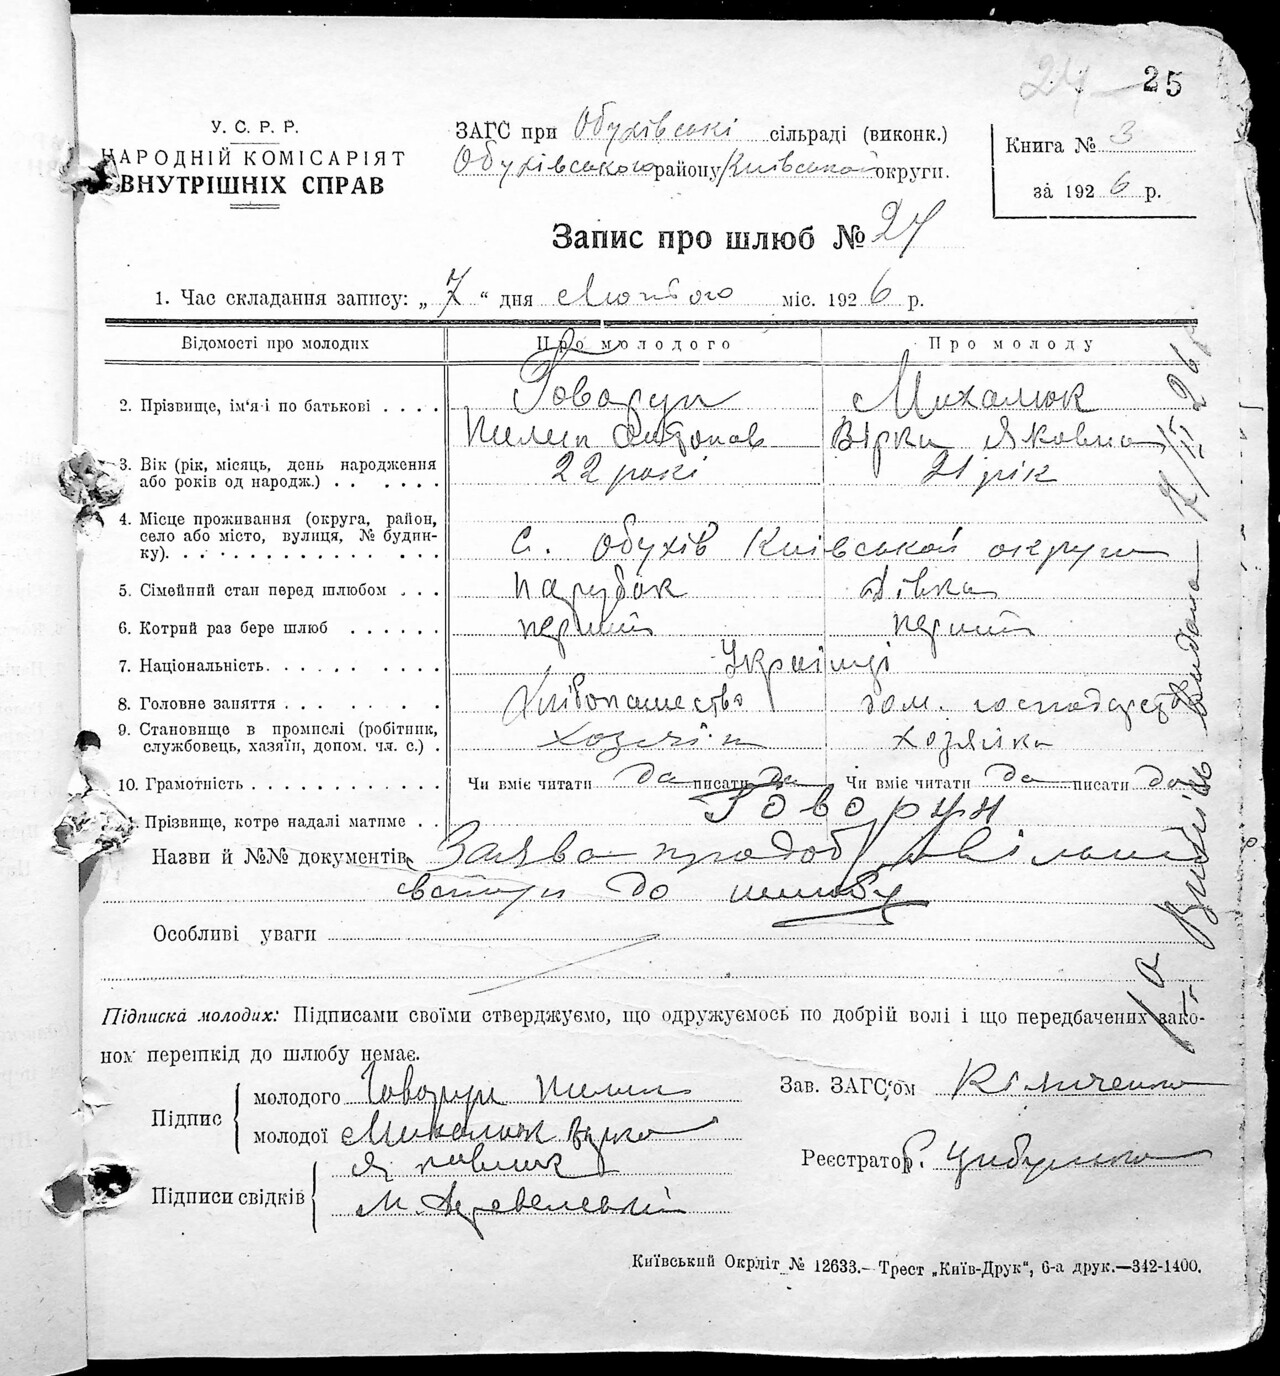 24 25
У. С. Р. Р.
НАРОДНІЙ КОМІСАРІЯТ
ВНУТРІШНІХ СПРАВ
ЗАГС при Обухівські сільраді (виконк.)
Обухівського району Київської округи.
Книга № 3
за 1926 р.
Запис про шлюб № 27
1. Час складання запису: „ 7 “ дня Лютого міс. 1926 р.
Відомості про молодих Про молодого Про молоду
2. Прізвище, ім'я і по батькові . . . . Говорун Михалюк
Пилип Антонов Вірка Яковна
3. Вік (рік, місяць, день народження 22 рокі 21 рік
або років од народж.) . . . . . .
4. Місце проживання (округа, район,
село або місто, вулиця, № будин-
ку). . . . . . . . . . . . . . с. Обухів Київської округи
5. Сімейний стан перед шлюбом . . . парубок дівка
6. Котрий раз бере шлюб . . . . . . перший перший
7. Національність. . . . . . . . . . Українці
8. Головне заняття . . . . . . . . Хлібопашество дом. господарство
9. Становище в промислі (робітник,
службовець, хазяїн, допом. чл. с.) . хозяїн хозяйка
10. Грамотність . . . . . . . . . . . Чи вміє читати да писати да Чи вміє читати да писати да
Прізвище, котре надалі матиме . . Говорун
Назви й №№ документів Заява про добровільний
вступ до шлюбу
Особливі уваги
Підписка молодих: Підписами своїми стверджуємо, що одружуємось по добрій волі і що передбачених зако-
ном перешкід до шлюбу немає.
Підпис
молодого Говорун Пилип
молодої Михалюк Вірка
Підписи свідків
Я Павлюк
М.
Зав. ЗАГС'ом
Реєстратор
Київський Окрліт № 12633.— Трест „Київ-Друк“, 6-а друк.—342-1400.
видана 7/II 26 р.